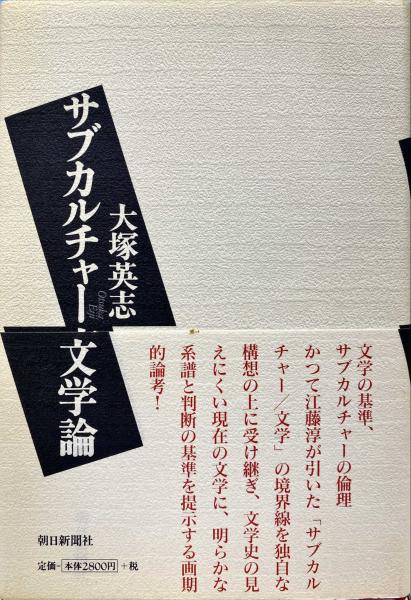 サブカルチャー文学論
大塚英志
Otsuka Eiji
文学の基準、
サブカルチャーの倫理
かつて江藤淳が引いた「サブカル
チャー/文学」の境界線を独自な
構想の上に受け継ぎ、文学史の見
えにくい現在の文学に、明らかな
系譜と判断の基準を提示する画期
的論考!
朝日新聞社
定価-本体2800円+税